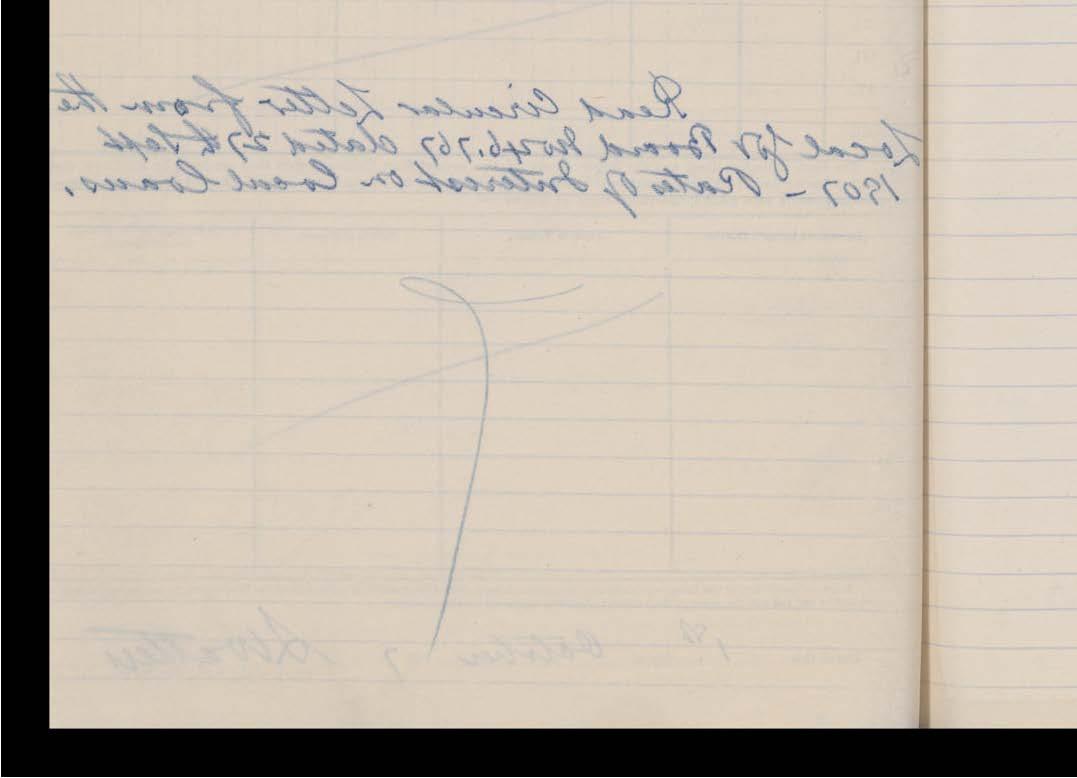 Read Circular Letter from the
Local Gov Board No 46.767 dated 27th Sept
1907 - Rates of Interest on Local Loans.
1st October 7